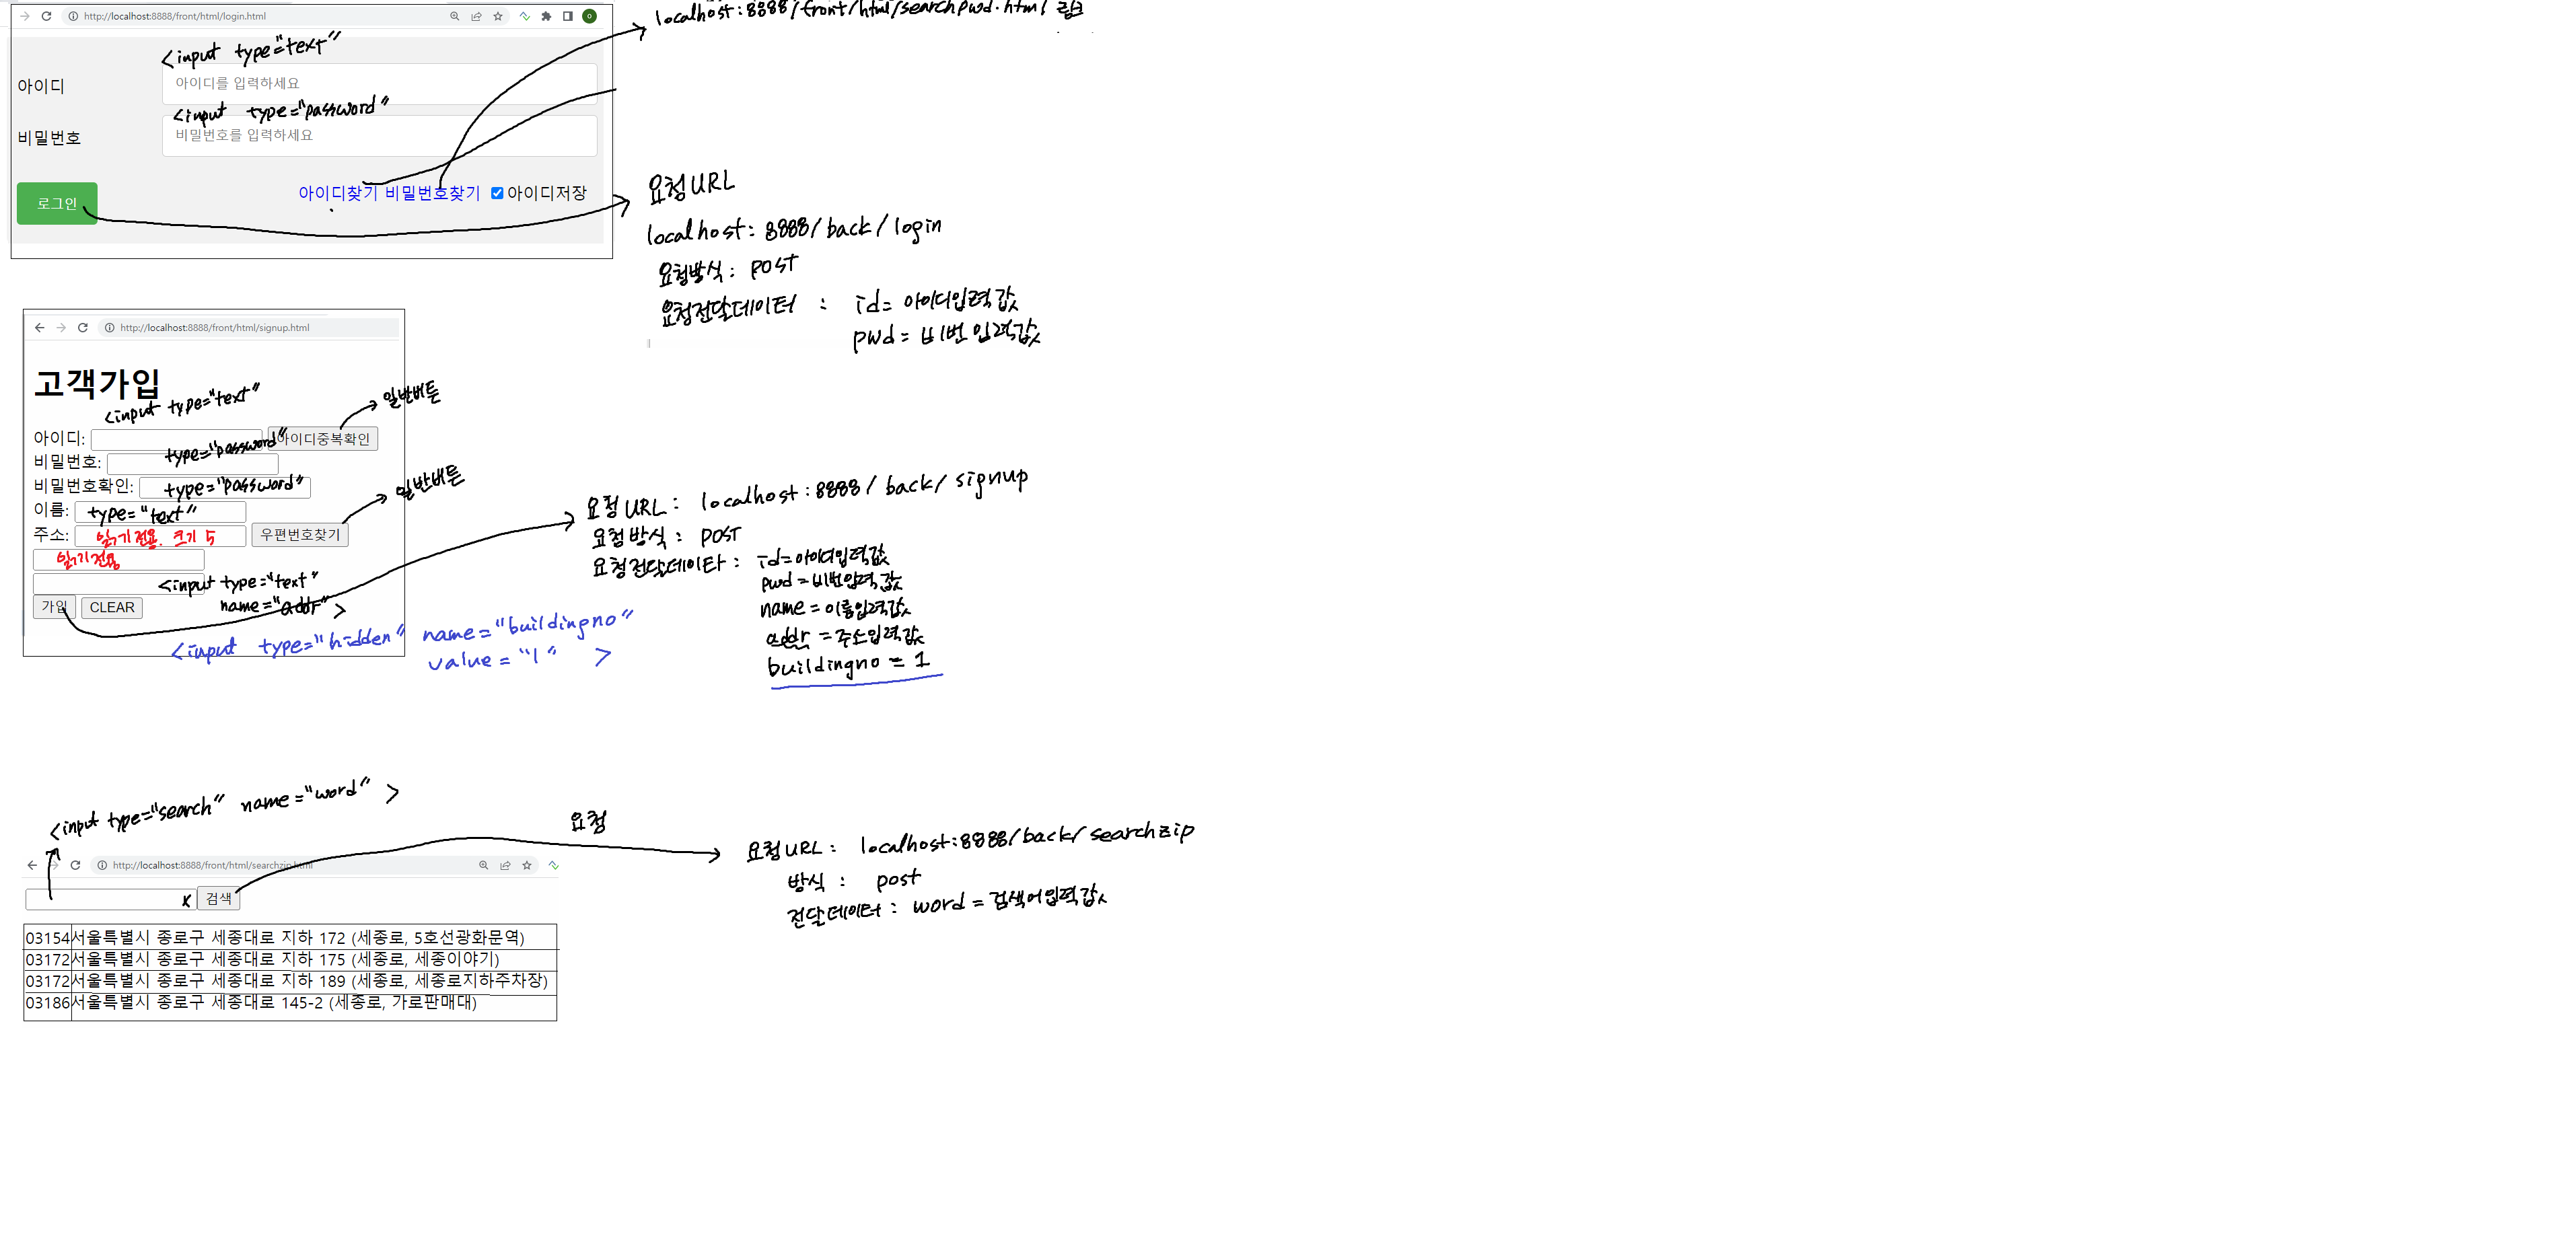 localhost:8888/front/html/searchpwd.html 링크
http://localhost:8888/front/html/login.html
<input type="text"
아이디
아이디를 입력하세요
<input type="password"
비밀번호
비밀번호를 입력하세요
로그인
아이디찾기 비밀번호찾기 아이디저장
요청URL
localhost:8888/back/login
요청방식: post
요청전달데이터 : id=아이디입력값
pwd=비번입력값
http://localhost:8888/front/html/signup.html
고객가입
<input type="text"
일반버튼
아이디:
아이디중복확인
type="password"
비밀번호:
비밀번호확인:
type="password"
일반버튼
이름:
type="text"
주소:
읽기전용. 크기 5
우편번호찾기
읽기전용
<input type="text"
name="addr" >
가입
CLEAR
<input type="hidden" name="buildingno"
value="1" >
요청URL: localhost:8888/back/signup
요청방식: post
요청전달데이타: id=아이디입력값
pwd=비번입력값
name=이름입력값
addr=주소입력값
buildingno=1
<input type="search" name="word" >
요청
http://localhost:8888/front/html/searchzip.html
x
검색
요청URL: localhost:8888/back/searchzip
방식: post
전달데이터: word=검색어입력값
03154 서울특별시 종로구 세종대로 지하 172 (세종로, 5호선광화문역)
03172 서울특별시 종로구 세종대로 지하 175 (세종로, 세종이야기)
03172 서울특별시 종로구 세종대로 지하 189 (세종로, 세종로지하주차장)
03186 서울특별시 종로구 세종대로 145-2 (세종로, 가로판매대)